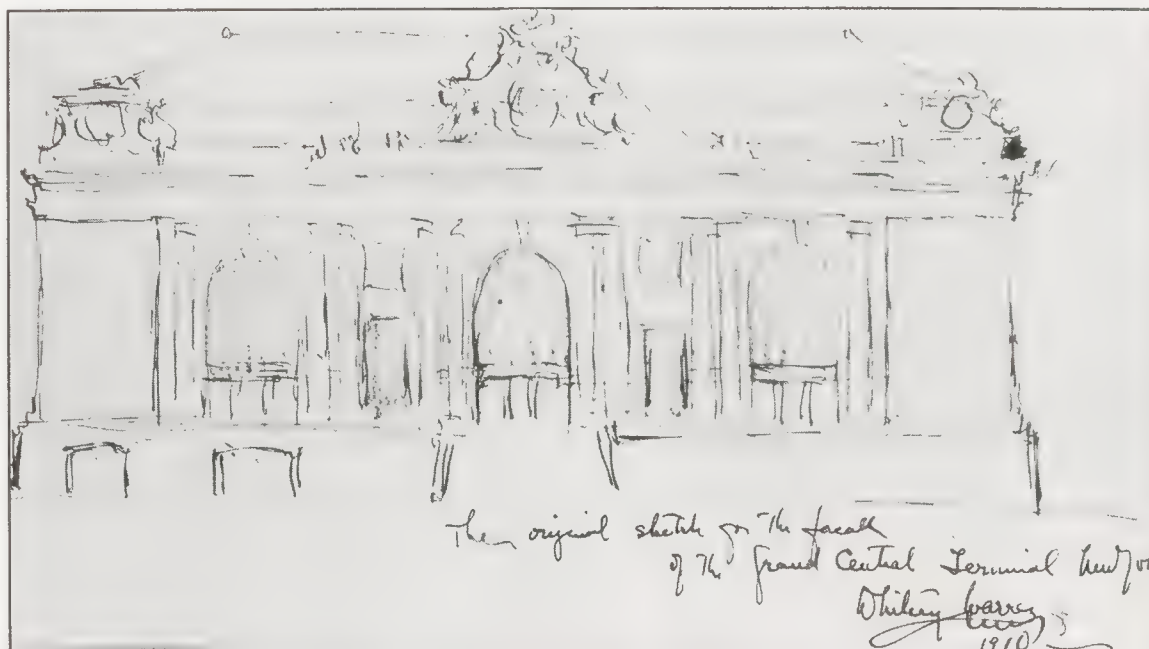 The original sketch for the facade
of the Grand Central Terminal New Yo
Whitney Warren
1910